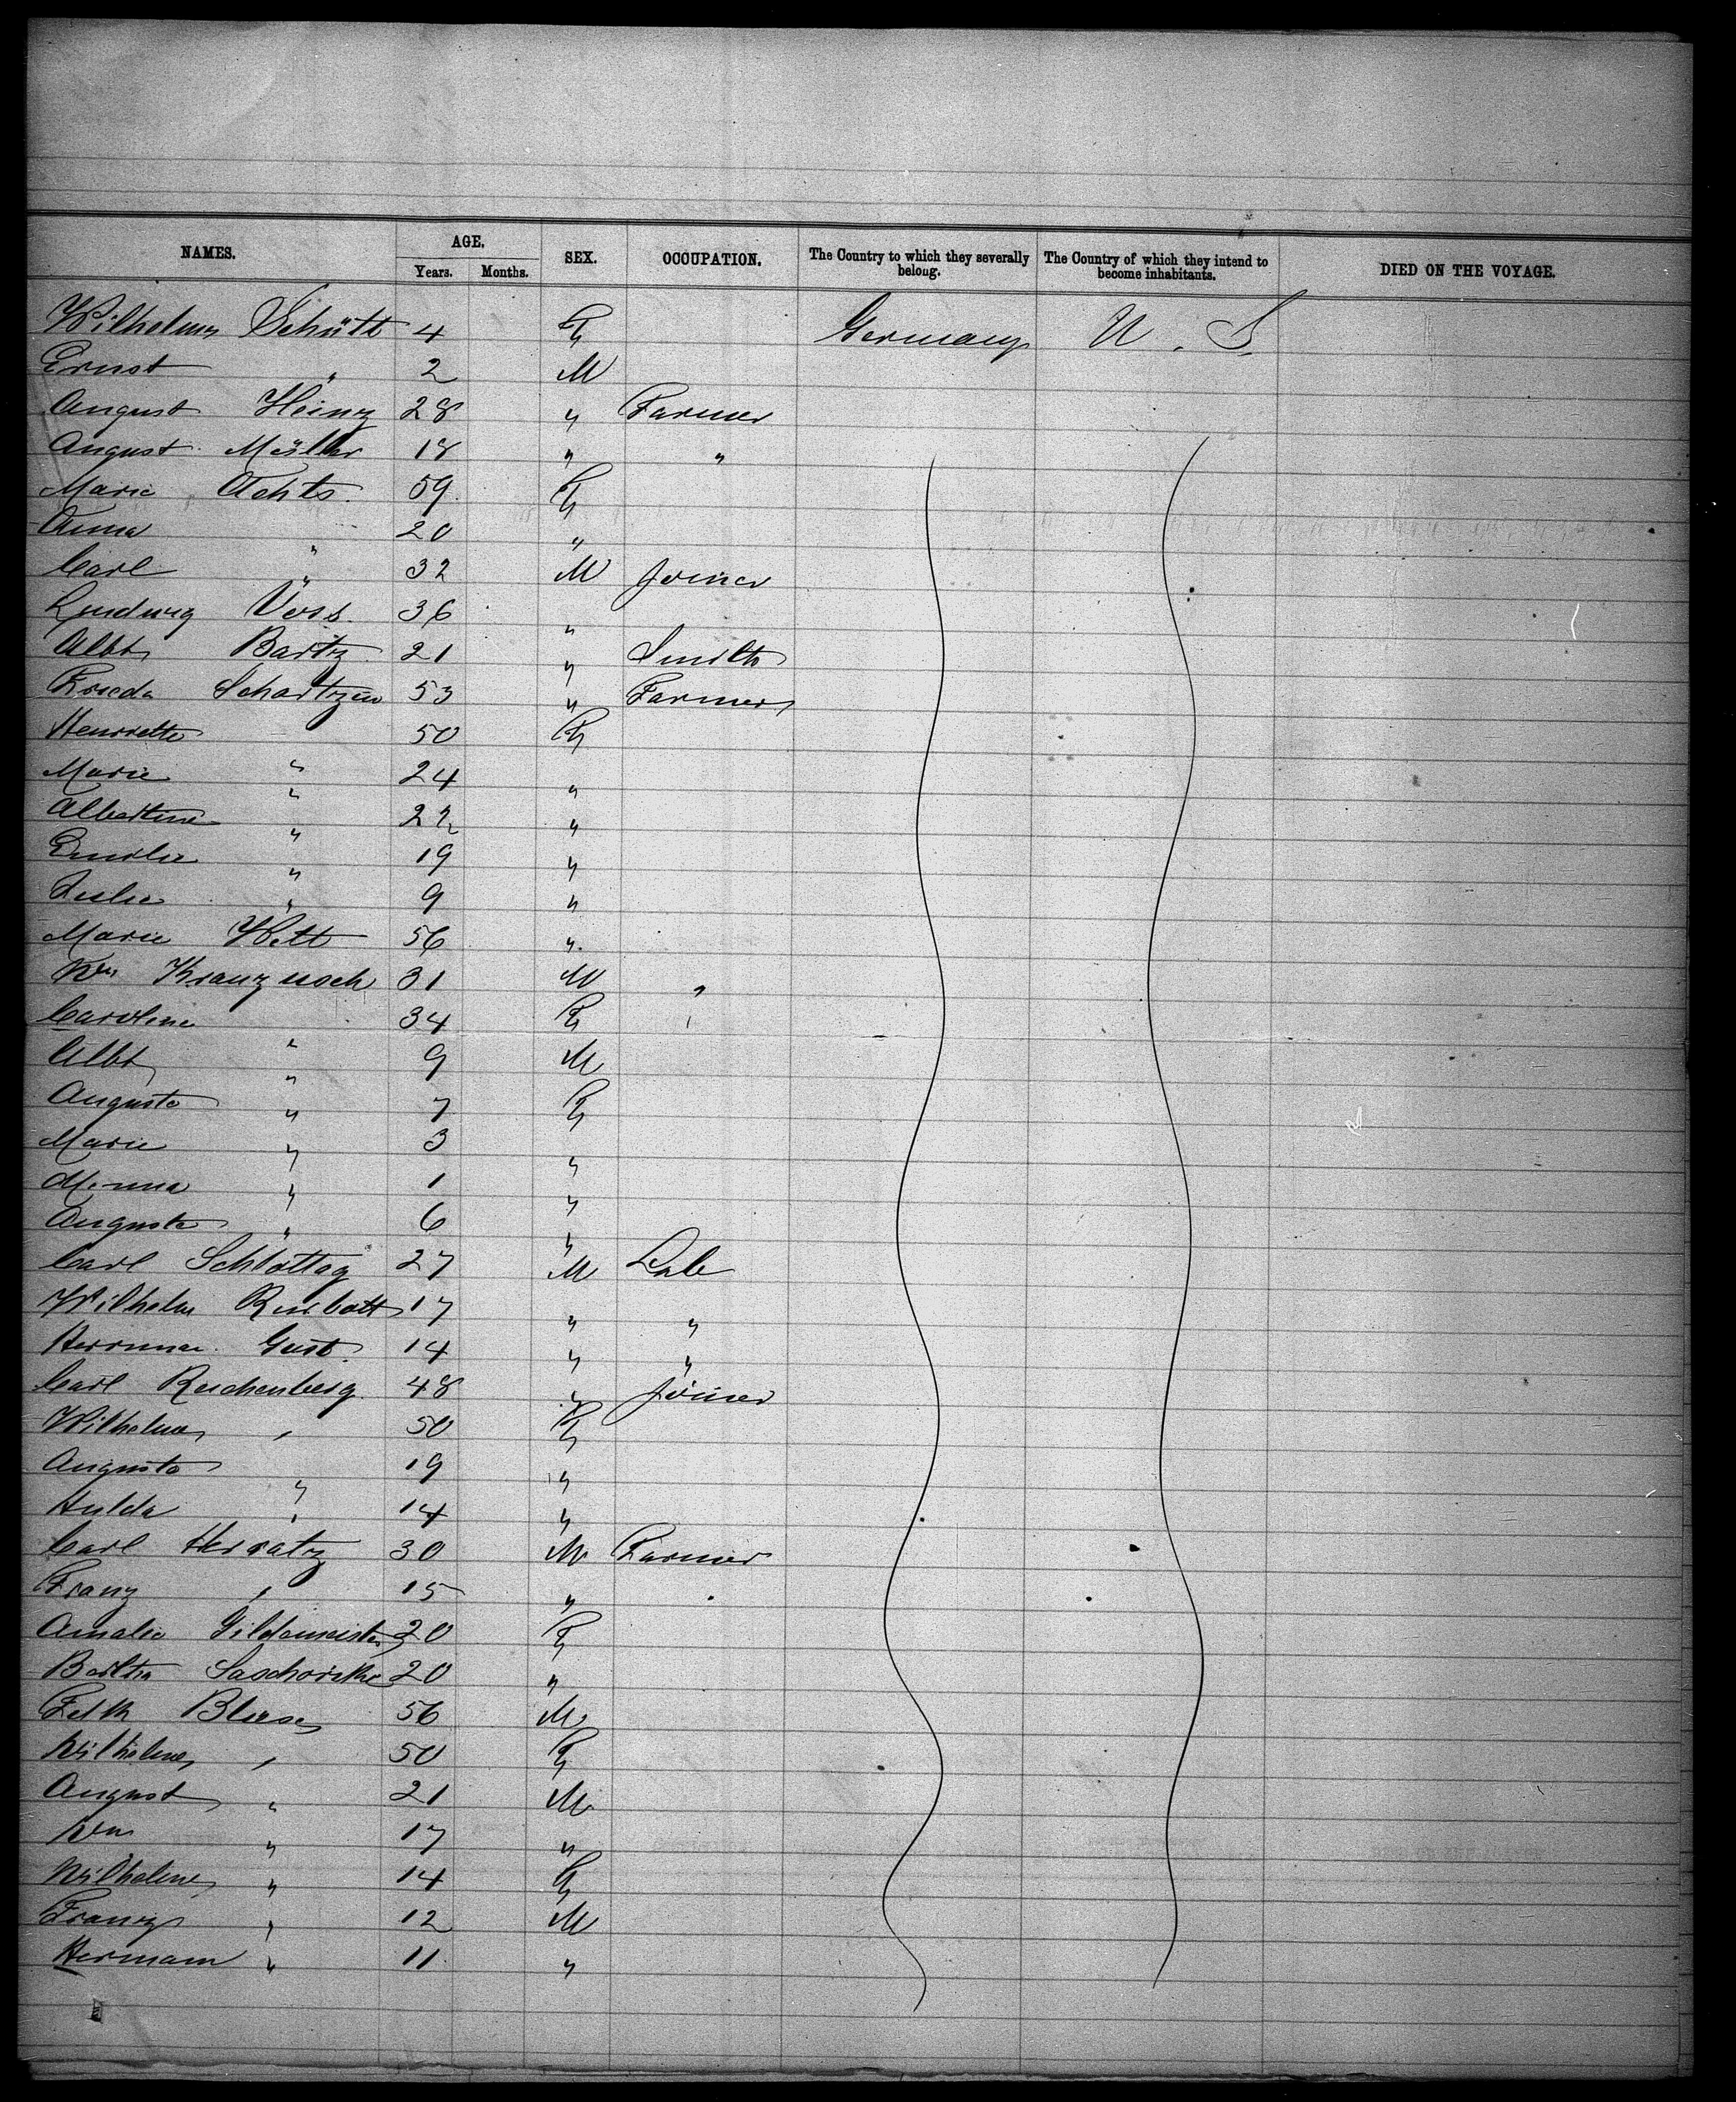 NAMES. AGE. SEX. OCCUPATION. The Country to which they severally belong. The Country of which they intend to become inhabitants. DIED ON THE VOYAGE.
Years. Months.
Wilhelmy Schütt 4 F Germany U. S.
Ernst " 2 M
August Heinz 28 " Farmer
August Müller 18 " "
Marie Achts. 59 F
Anna " 20 "
Carl " 32 M Joiner
Ludwig Voss. 36 "
Albt Bartz 21 " Smith
Frieda 53 " Farmer
Henriette " 50 F
Marie " 24 "
Albertine " 22 "
Emilie " 19 "
Julie " 9 "
Marie Witt 56 "
Wm 31 M "
Caroline " 34 F
Albt " 9 M
Auguste " 7 F
Marie " 3 "
Minna " 1 "
Auguste " 6 "
Carl Schlottag 27 M Lab
Wilhelm 17 " "
Herrman Gust. 14 " "
Carl Reichenberg 48 " Joiner
Wilhelm " 50 F
Auguste " 19 "
Hulda " 14 "
Carl Herratz 30 M Farmer
Franz " 15 " "
Amalie Gildemeister 20 F
Bertha 20 "
56 M
Wilhelm " 50 F
August " 21 M
Wm " 17 "
Wilhelm " 14 F
Franz " 12 M
Hermann " 11 "